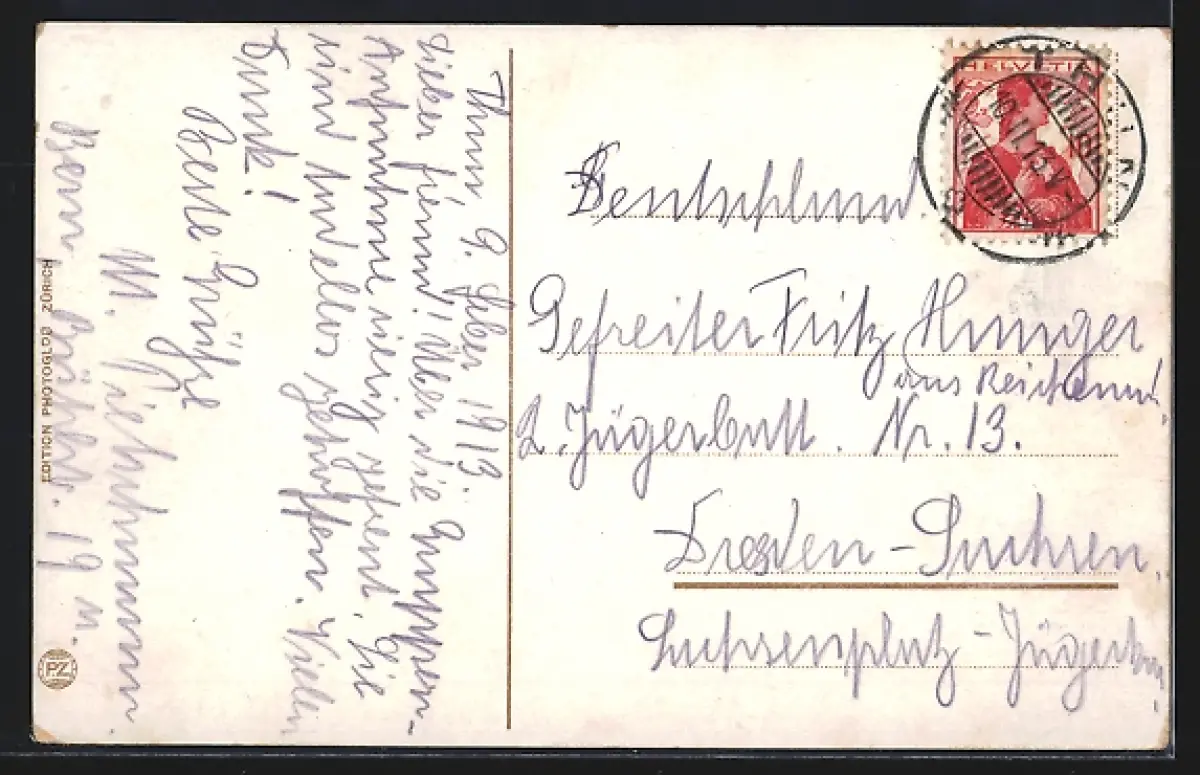 Thun, 9. Feber 1913.
Lieber Freund! Über die Gruppen-
Aufnahme riesig gefreut. Sie
sind darauf getroffen. Vielen
Dank!
Beste Grüße
M.
Bern, 19
EDITION PHOTOGLOB ZÜRICH
PZ
HELVETIA
THUN
Deutschland.
Gefreiter Fritz Hunger
aus Reichenau
2. Jägerbatl. Nr. 13.
Dresden-Sachsen.
Sachsenplatz-Jäger